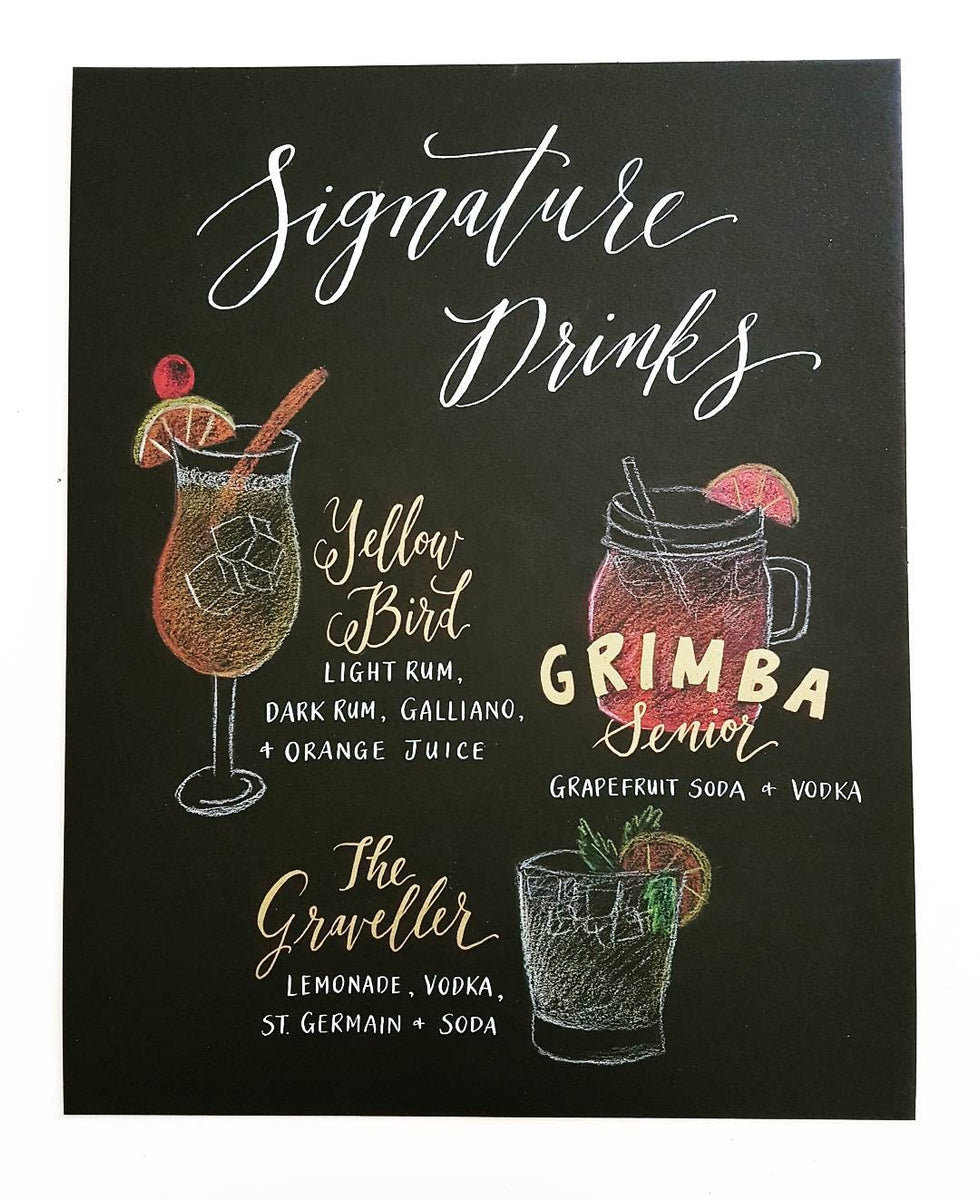 Signature
Drinks
Yellow
Bird
LIGHT RUM,
DARK RUM, GALLIANO,
+ ORANGE JUICE
GRIMBA
Senior
GRAPEFRUIT SODA + VODKA
The
Graveller
LEMONADE, VODKA,
ST. GERMAIN + SODA